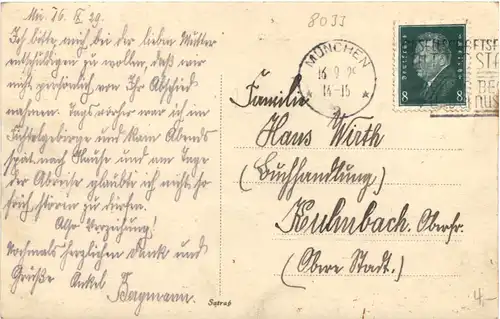 Mü 16. IX. 29.
Ich bitte mich bei der lieben Mutter
entschuldigen zu wollen, daß wir
nicht persönlich von Ihr Abschied
nahmen. Tags vorher war ich im
Fichtelgebirge und kam Abends
spät nach Hause und am Tage
der Abreise glaubte ich nicht so
früh stören zu dürfen.
Also Verzeihung!
Nochmals herzlichen Dank und
Grüße Onkel
Bergmann.
8033
MÜNCHEN
16 9 29
14-15
2
DEUTSCHES REICH
8 8
Familie
Hans Wirth
(Buchhandlung)
Kulmbach. Oberfr.
(Obere Stadt.)
Satrap
4,-